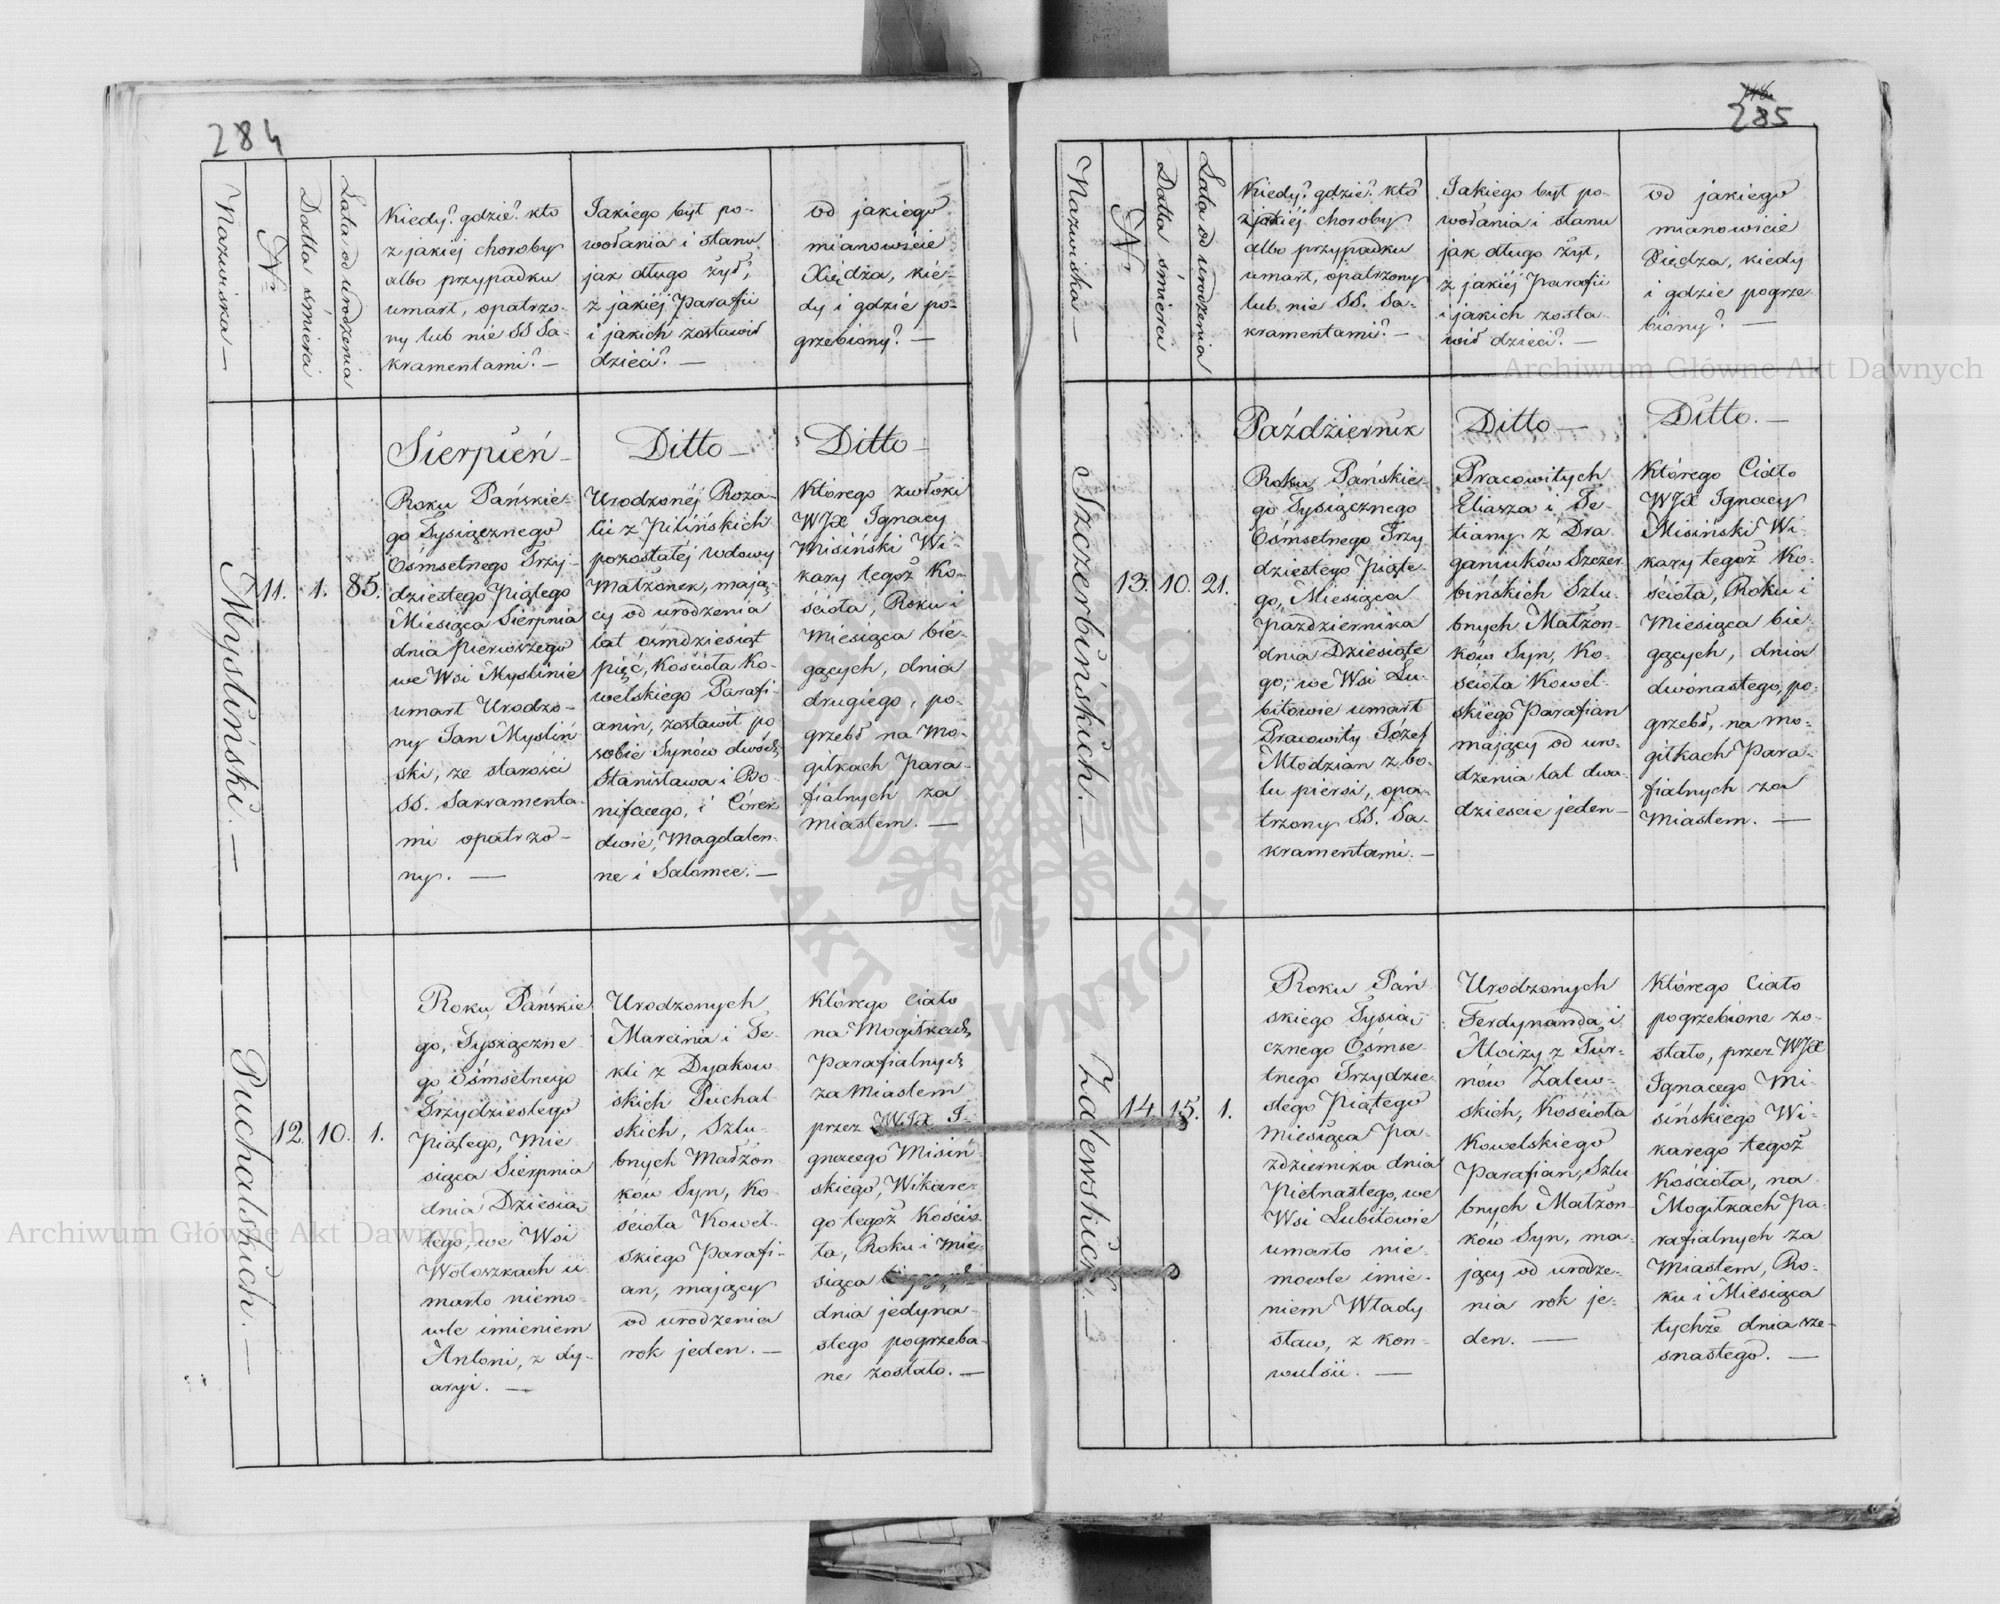 284
Nazwiska —
N<sup>o</sup>
Datta śmierci
Lata od urodzenia
Kiedy? gdzie? kto
z jakiéj choroby
albo przypadku
umarł, opatrzo-
ny lub nie SS Sa-
kramentami? —
Jakiego był po-
wołania i stanu,
jak długo żył,
z jakiéj Parafii
i jakich zostawił
dzieci? —
od jakiego
mianowicie
Xiędza, kie-
dy i gdzie po-
grzebiony? —
Myśliński. —
11.
1.
85.
Sierpień —
Roku Pańskie-
go Tysiącznego
Ósmsetnego Trzy-
dziestego Piątego
Miesiąca Sierpnia
dnia Pierwszego
we Wsi Myslinie
umarł Urodzo-
ny Jan Myśliń
ski, ze starości
SS. Sakramenta-
mi opatrzo-
ny. —
Ditto —
Urodzonéj Roza-
lii z Pilińskich
pozostałéj wdowy
Małżonek, mają-
cy od urodzenia
lat ośmdziesiąt
pięć, Kościoła Ko-
welskiego Parafi-
anin, zostawił po
sobie Synów dwóch
Stanisława i Bo-
nifacego, i Córek
dwie, Magdalen-
ne i Salomee. —
Ditto —
Którego zwłoki
WJX Ignacy
Misiński Wi-
kary tegoż Ko-
ścioła, Roku i
Miesiąca bie-
gących, dnia
drugiego, po-
grzebł na Mo-
giłkach Para-
fialnych za
miastem. —
Puchalskich. —
12.
10.
1.
Roku Pańskie
go, Tysiączne-
go Ósmsetnego
Trzydziestego
Piątego, Mie
siąca Sierpnia
dnia Dziesią-
tego, we Wsi
Wołoszkach u-
marło niemo-
wle imieniem
Antoni, z dy-
aryi. —
Urodzonych
Marcina i Te-
kli z Dyakow-
skich Puchal
skich, Szlu-
bnych Małżon-
ków Syn, Ko-
ścioła Kowel-
skiego Parafi-
an, mający
od urodzenia
rok jeden. —
Którego ciało
na Mogiłkach
Parafialnych
za Miastem
przez WJX I-
gnacego Misiń-
skiego, Wikare-
go tegoż Kościo-
ła, Roku i Mie-
siąca
dnia jedyna-
stego pogrzeba-
ne zostało. —
285
Nazwiska —
N<sup>o</sup>
Datta śmierci
Lata od urodzenia
Kiedy? gdzie? kto
z jakiéj choroby
albo przypadku
umarł, opatrzony
lub nie SS. Sa-
kramentami? —
Jakiego był po-
wołania i stanu
jak długo żył,
z jakiéj Parafii
i jakich zosta-
wił dzieci? —
od jakiego
mianowicie
Xiędza, kiedy
i gdzie pogrze-
biony? —
Szczerbińskich. —
13.
10.
21.
Październik
Roku Pańskie-
go Tysiącznego
Ósmsetnego Trzy
dziestego Piąte-
go, Miesiąca
Października
dnia Dziesiąte
go, we Wsi Lu-
bitowie umarł
Pracowity Józef
Młodzian z bo-
lu piersi, opa-
trzony SS. Sa-
kramentami. —
Ditto —
Pracowitych
Eliasza i Te-
tiany z Dra-
ganiuków Szczer-
bińskich Szlu-
bnych Małżon-
ków Syn, Ko-
ścioła Kowel-
skiego Parafian
mający od uro-
dzenia lat dwa-
dzieście jeden —
Ditto. —
Którego Ciało
WJX Ignacy
Misiński Wi-
kary tegoż Ko-
ścioła, Roku i
Miesiąca bie-
gących, dnia
dwónastego, po-
grzebł, na mo-
giłkach Para-
fialnych za
Miastem. —
Zalewskich. —
14.
15.
1.
Roku Pań
skiego Tysią-
cznego Ósmse-
tnego Trzydzie-
stego Piątego
miesiąca Pa-
ździernika dnia
Pietnastego, we
Wsi Lubitowie
umarło nie-
mowle imie-
niem Włady
sław, z kon-
wulsii. —
Urodzonych
Ferdynanda i
Aloizy z Tur-
nów Zalew-
skich, Kościoła
Kowelskiego
Parafian, Szlu
bnych Małżon-
ków Syn, ma-
jący od urodze-
nia rok je-
den. —
Którego Ciało
pogrzebione zo-
stało, przez WJX
Ignacego Mi-
sińskiego Wi-
karego tegoż
Kościoła, na
Mogiłkach Pa-
rafialnych za
Miastem, Ro-
ku i Miesiąca
tychże dnia sze-
snastego. —
Archiwum Główne Akt Dawnych
Archiwum Główne Akt Dawnych